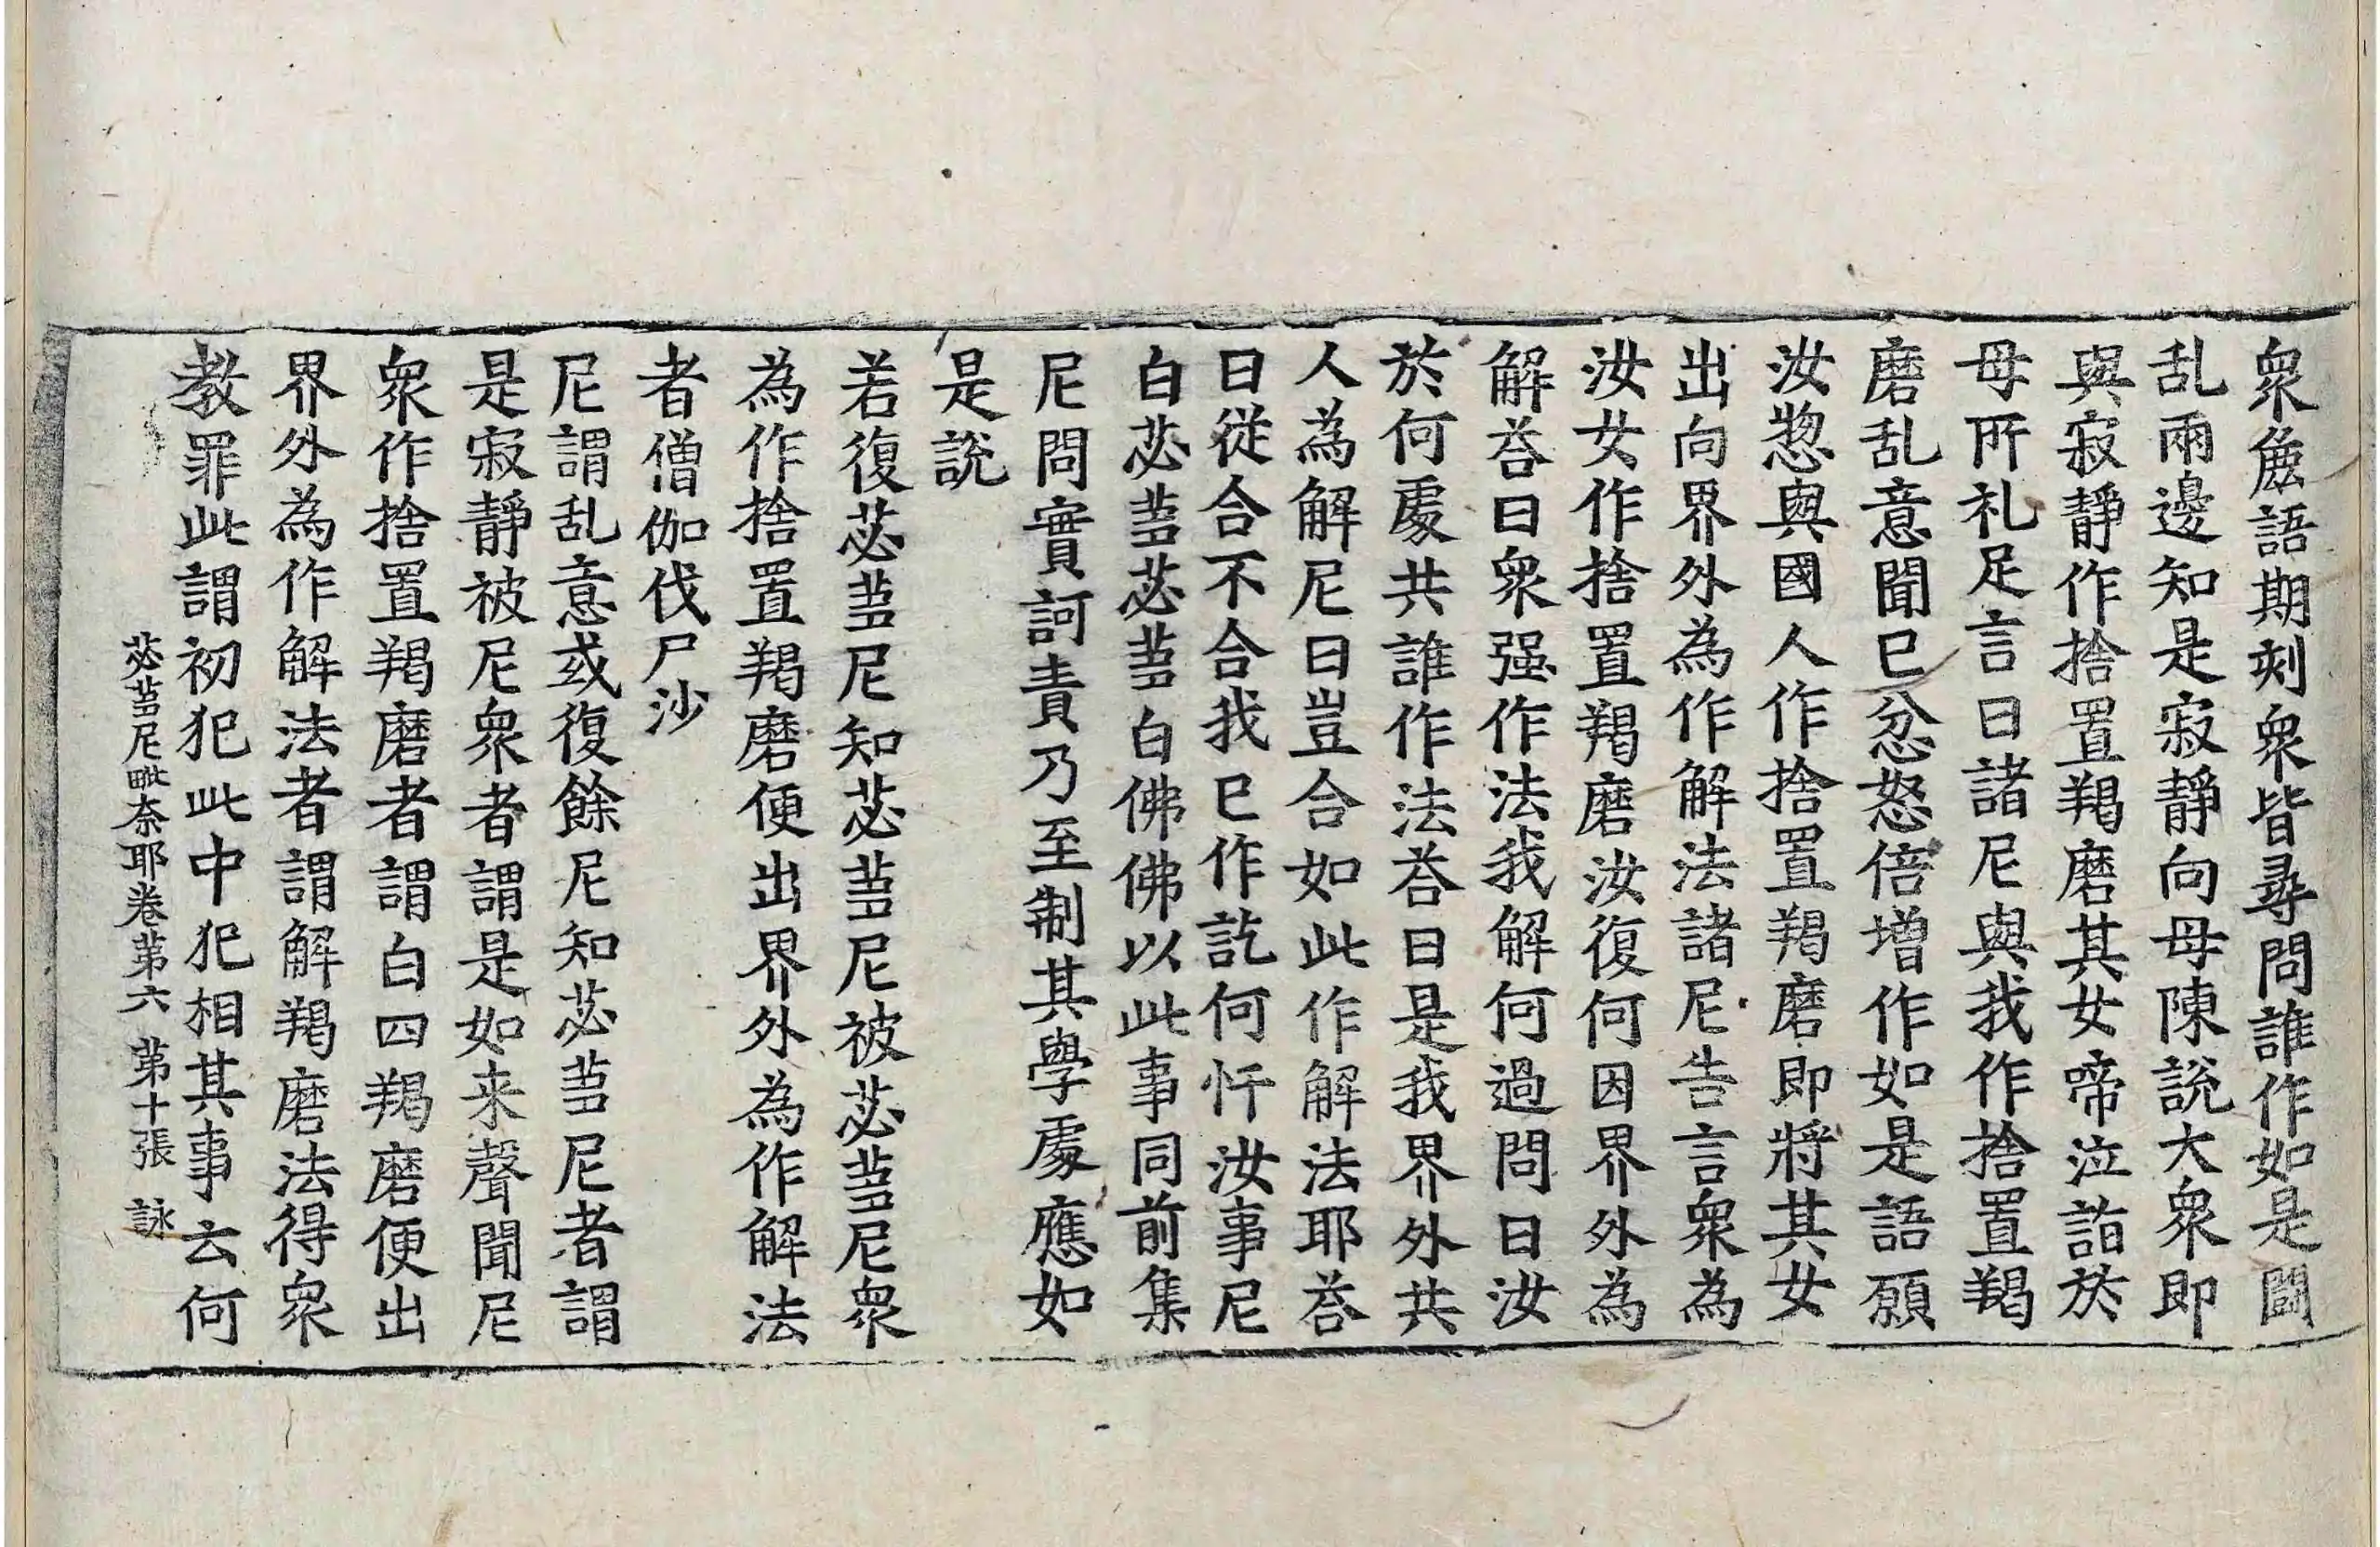 衆麁語期剋衆皆尋問誰作如是鬪
乱兩邊知是寂靜向母陳說大衆即
與寂靜作捨置羯磨其女啼泣詣於
母所礼足言曰諸尼與我作捨置羯
磨乱意聞已忿怒倍增作如是語願
汝惣與國人作捨置羯磨即將其女
出向界外為作解法諸尼告言衆為
汝女作捨置羯磨汝復何因界外為
解荅曰衆强作法我解何過問曰汝
於何處共誰作法荅曰是我界外共
人為解尼曰豈合如此作解法耶荅
曰從合不合我已作訖何忏汝事尼
白苾蒭苾蒭白佛佛以此事同前集
尼問實訶責乃至制其學處應如
是說
若復苾蒭尼知苾蒭尼被苾蒭尼衆
為作捨置羯磨便出界外為作解法
者僧伽伐尸沙
尼謂乱意或復餘尼知苾蒭尼者謂
是寂靜被尼衆者謂是如来聲聞尼
衆作捨置羯磨者謂白四羯磨便出
界外為作解法者謂解羯磨法得衆
教罪此謂初犯此中犯相其事云何
苾蒭尼毗奈耶卷第六 第十張 詠